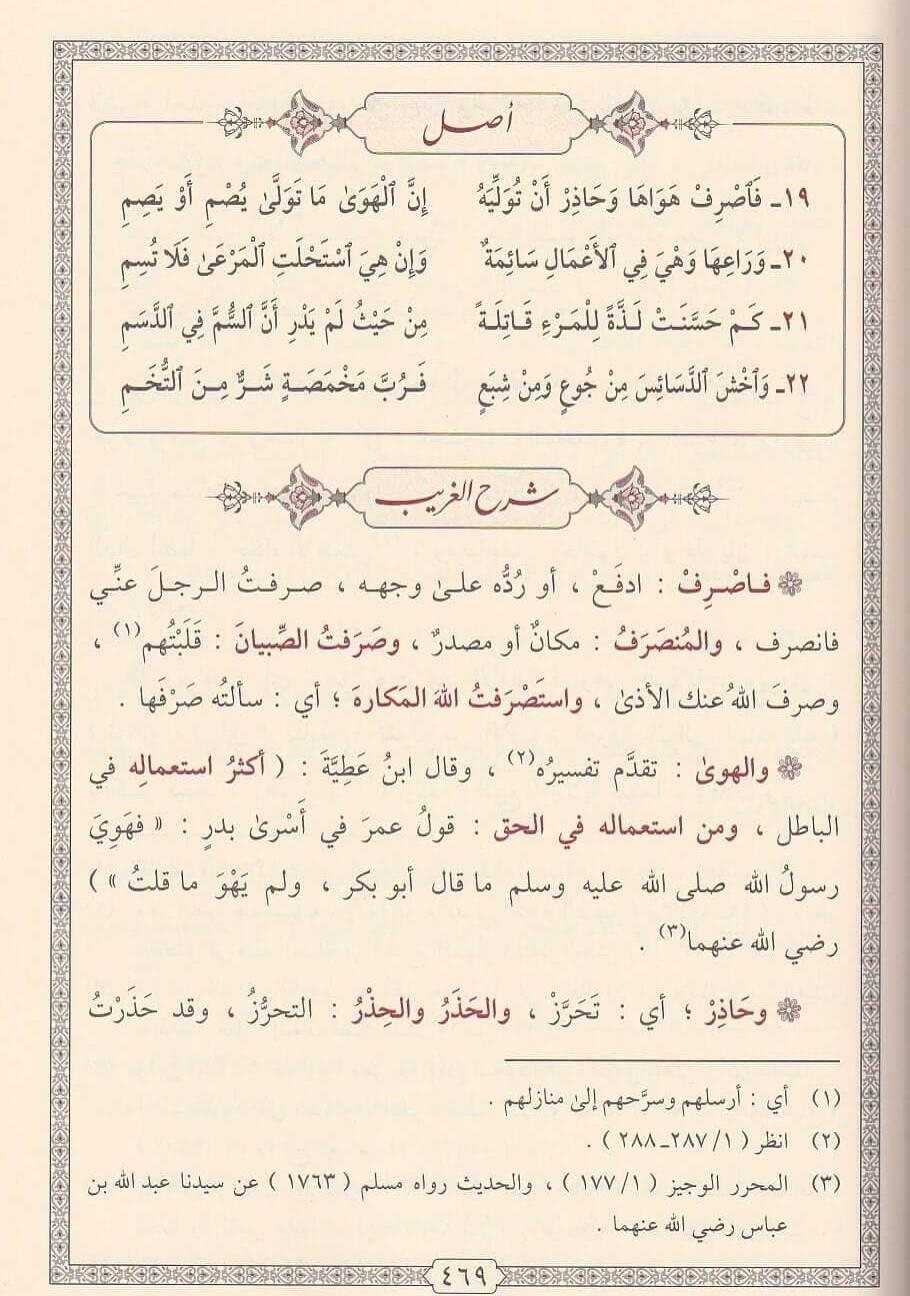 أصل
١٩ـ فَٱصْرِفْ هَوَاهَا وَحَاذِرْ أَنْ تُوَلِّيَهُ إِنَّ ٱلْهَوَىٰ مَا تَوَلَّىٰ يُصْمِ أَوْ يَصِمِ
٢٠ـ وَرَاعِهَا وَهْيَ فِي ٱلأَعْمَالِ سَائِمَةٌ وَإِنْ هِيَ ٱسْتَحْلَتِ ٱلْمَرْعَىٰ فَلَا تُسِمِ
٢١ـ كَمْ حَسَّنَتْ لَذَّةً لِلْمَرْءِ قَاتِلَةً مِنْ حَيْثُ لَمْ يَدْرِ أَنَّ ٱلسُّمَّ فِي ٱلدَّسَمِ
٢٢ـ وَٱخْشَ ٱلدَّسَائِسَ مِنْ جُوعٍ وَمِنْ شِبَعٍ فَرُبَّ مَخْمَصَةٍ شَرٌّ مِنَ ٱلتُّخَمِ
شرح الغريب
فاصْرِفْ : ادفَعْ ، أو رُدُّه علىٰ وجهه ، صرفتُ الرجلَ عنِّي
فانصرف ، والمُنصَرَفُ : مكانٌ أو مصدرٌ ، وصَرَفتُ الصِّبيانَ : قَلَبْتُهم(١) ،
وصرفَ اللهُ عنك الأذىٰ ، واستَصْرَفتُ اللهَ المَكارهَ ؛ أي : سألتُه صَرْفَها .
والهوىٰ : تقدَّم تفسيرُه(٢) ، وقال ابنُ عَطِيَّةَ : ( أكثرُ استعمالِه في
الباطل ، ومن استعماله في الحق : قولُ عمرَ في أَسْرىٰ بدرٍ : « فهَوِيَ
رسولُ الله صلى الله عليه وسلم ما قال أبو بكر ، ولم يَهْوَ ما قلتُ » )
رضي الله عنهما(٣) .
وحَاذِرْ ؛ أي : تَحَرَّزْ ، والحَذَرُ والحِذْرُ : التحرُّزُ ، وقد حَذَرْتُ
(١) أي : أرسلهم وسرَّحهم إلىٰ منازلهم .
(٢) انظر ( ١/ ٢٨٧ـ٢٨٨ ) .
(٣) المحرر الوجيز ( ١/ ١٧٧ ) ، والحديث رواه مسلم ( ١٧٦٣ ) عن سيدنا عبد الله بن
عباس رضي الله عنهما .
٤٦٩